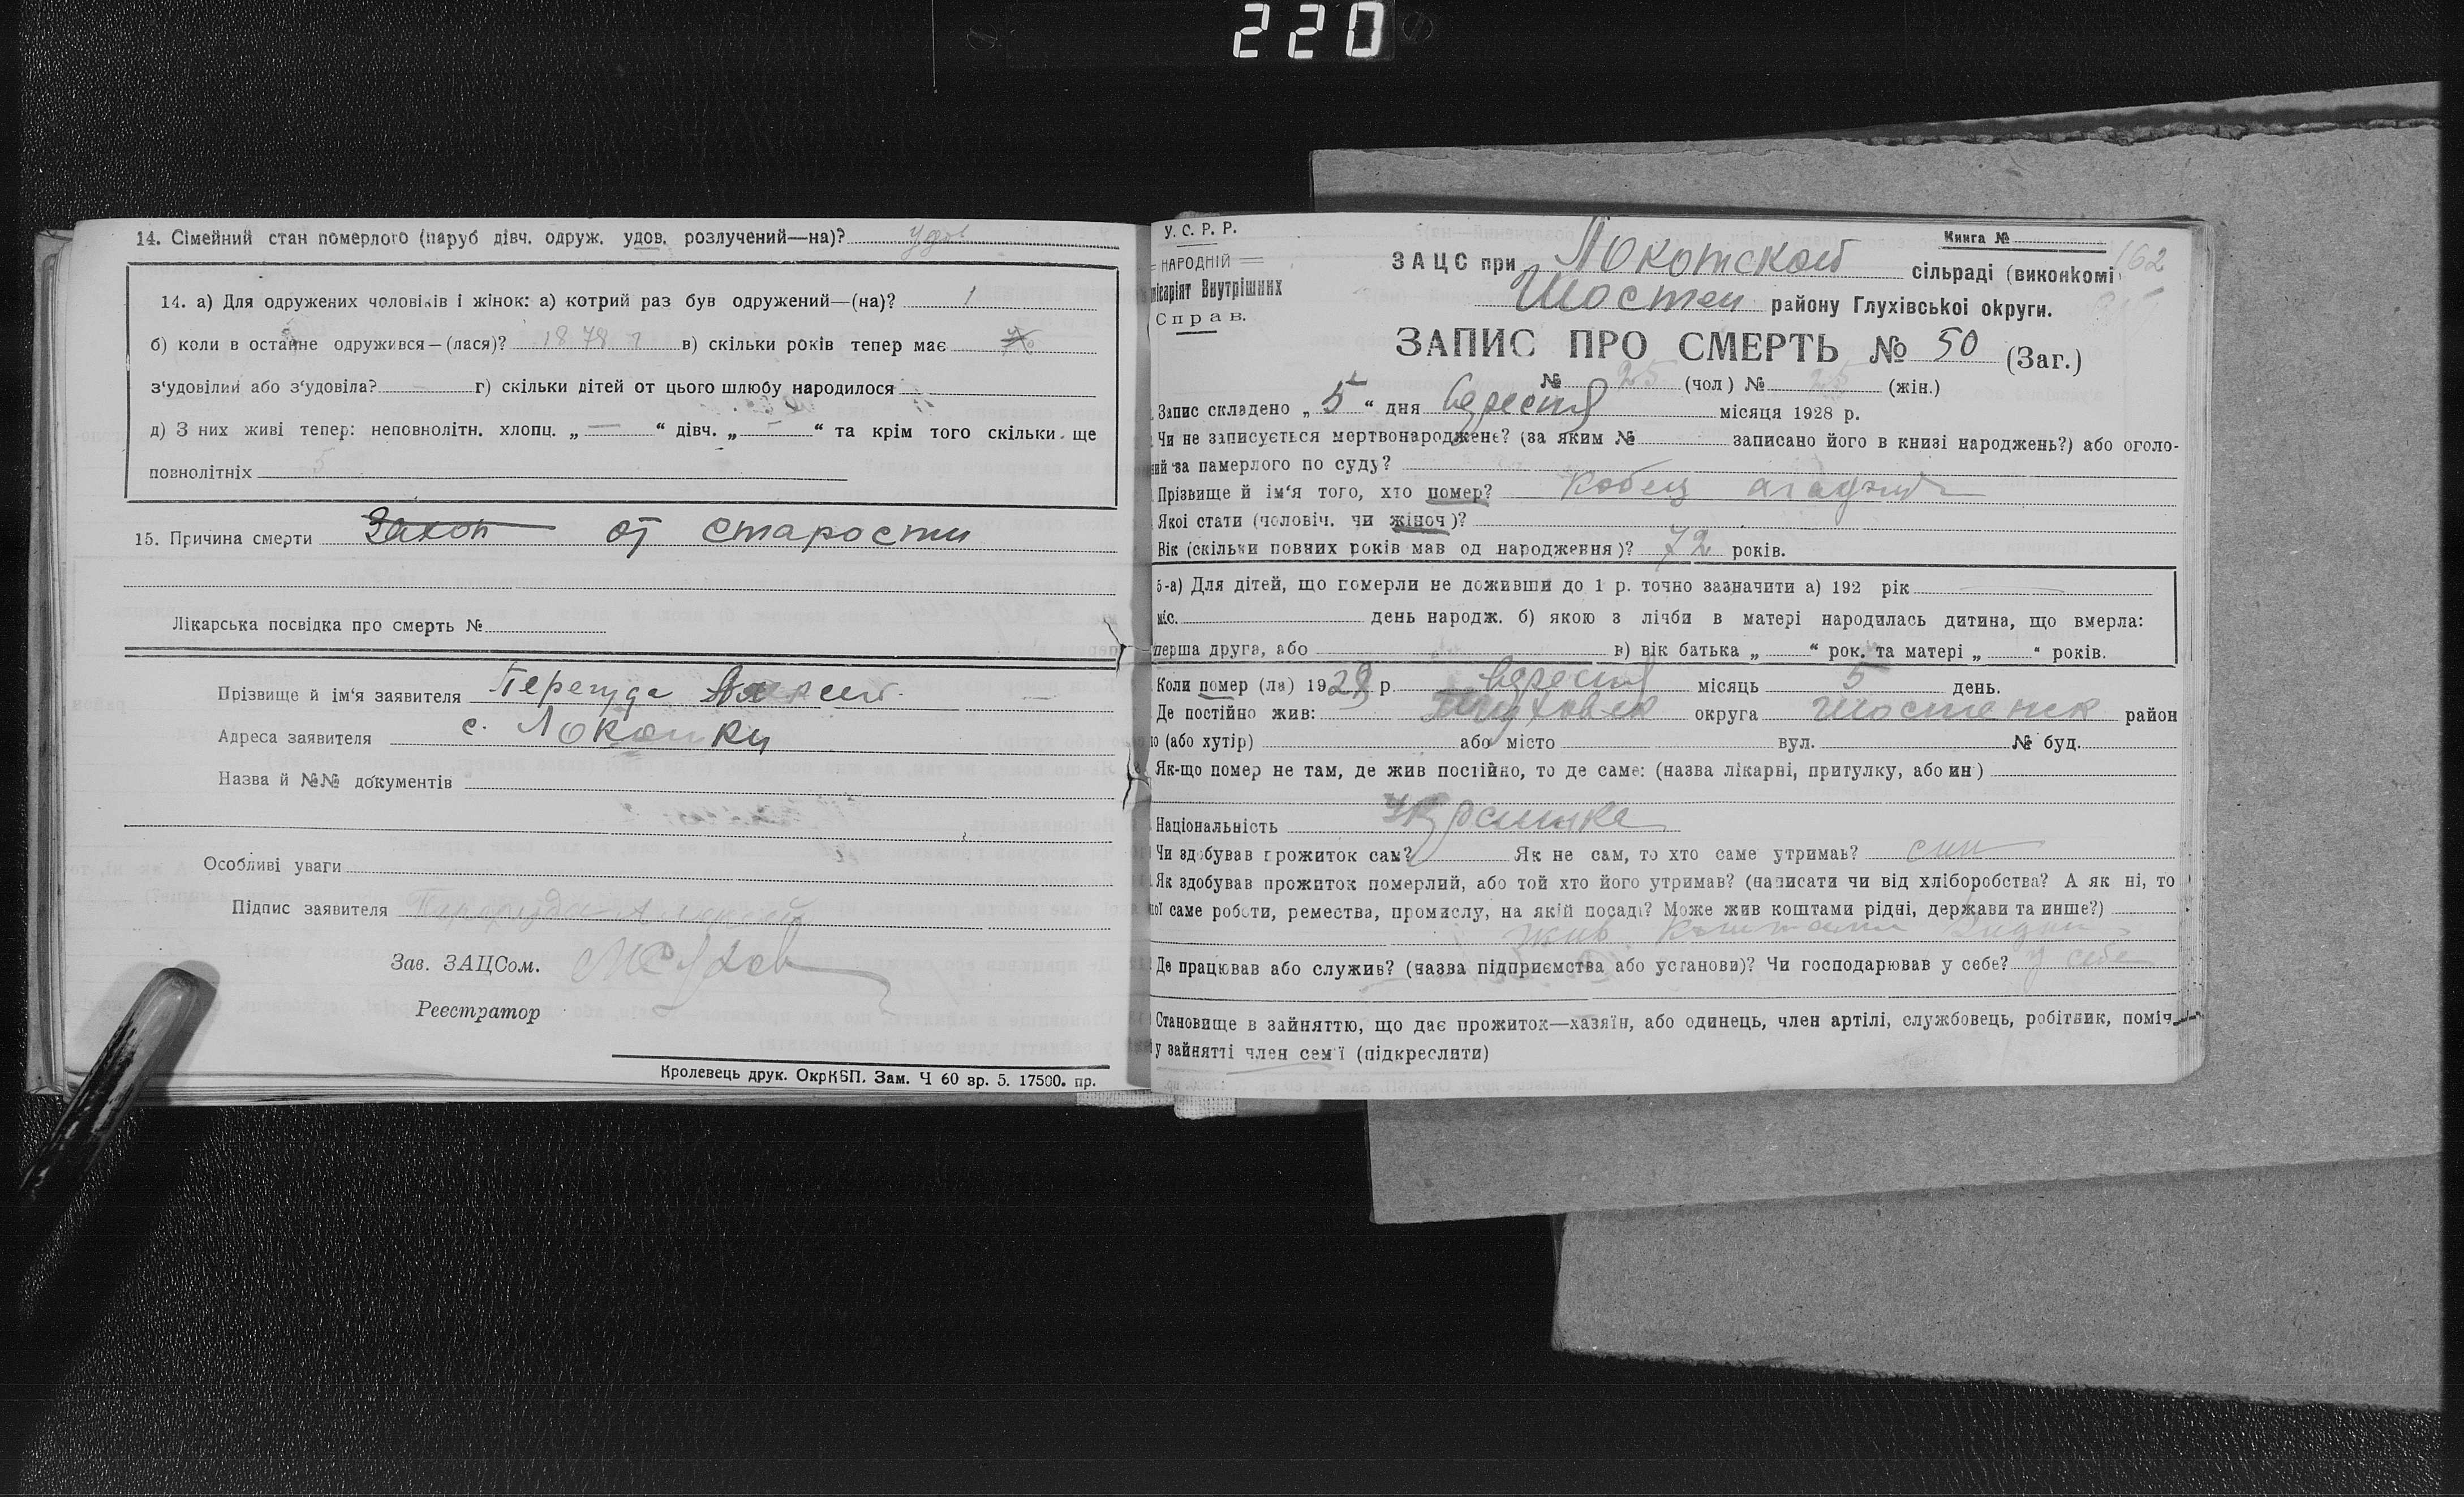 220
14. Сімейний стан померлого (паруб дівч. одруж. удов. розлучений—на)? удов
14. а) Для одружених чоловіків і жінок: а) котрий раз був одружений—(на)? 1
б) коли в останне одружився—(лася)? 1878 г в) скільки років тепер має
з'удовілий або з'удовіла? г) скільки дітей от цього шлюбу народилося
д) З них живі тепер: неповнолітн. хлопц. „ — “ дівч. „ — “ та крім того скільки ще
повнолітніх 5
15. Причина смерти от старости
Лікарська посвідка про смерть №
Прізвище й ім'я заявителя Перегуда Алексей
Адреса заявителя с. Локотки
Назва й №№ документів
Особливі уваги
Підпис заявителя Перегуда Алексей
Зав. ЗАЦСом.
Реєстратор
Кролевець друк. ОкрКВП. Зам. Ч 60 зр. 5. 17500. пр.
У. С. Р. Р.
НАРОДНІЙ
місаріят Внутрішних
Справ.
Книга №
162
ЗАЦС при Локотской сільраді (виконкомі
Шостен району Глухівської округи.
ЗАПИС ПРО СМЕРТЬ № 50 (Заг.)
№ 25 (чол) № 25 (жін.)
Запис складено „ 5 “ дня вересня місяця 1928 р.
Чи не записується мертвонароджене? (за яким № записано його в книзі народжень?) або оголо-
ний за памерлого по суду?
Прізвище й ім'я того, хто помер? Кобец
Якої стати (чоловіч. чи жіноч)?
Вік (скільки повних років мав од народження)? 72 років.
5-а) Для дітей, що померли не доживши до 1 р. точно зазначити а) 192 рік
міс. день народж. б) якою з лічби в матері народилась дитина, що вмерла:
перша друга, або в) вік батька „ “ рок. та матері „ “ років.
Коли помер (ла) 1928 р. вересня місяць 5 день.
Де постійно жив: Глуховск округа Шостенск район
о (або хутір) або місто вул. № буд.
Як-що помер не там, де жив постійно, то де саме: (назва лікарні, притулку, або ин)
Національність Украинка
Чи здобував прожиток сам? Як не сам, то хто саме утримав? син
Як здобував прожиток померлий, або той хто його утримав? (написати чи від хліборобства? А як ні, то
кої саме роботи, ремества, промислу, на якій посаді? Може жив коштами рідні, держави та инше?)
жив коштами Видни
Де працював або служив? (назва підприємства або установи)? Чи господарював у себе? у себе
Становище в зайняттю, що дає прожиток—хазяїн, або одинець, член артілі, службовець, робітник, поміч
у зайнятті член сем'ї (підкреслити)